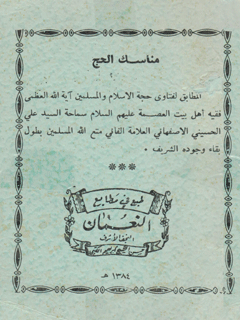 مناسك الحج
المطابق لفتاوى حجة الاسلام والمسلمين آية الله العظمى
فقيه أهل بيت العصمة عليهم السلام سماحة السيد علي
الحسيني الاصفهاني العلامة الفاني متع الله المسلمين بطول
بقاء وجوده الشريف .
***
طبع في مطابع
النعمان
النجف الأشرف
١٣٨٤ هـ